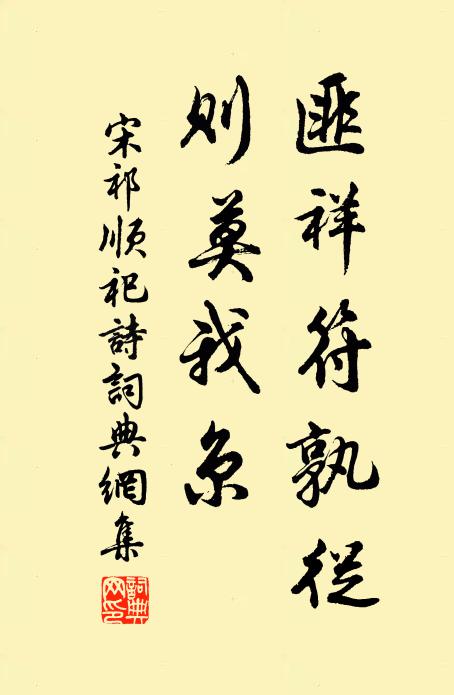 匪祥符孰從
則莫我京
宋祁順祀詩詞典網集
詞典
网印